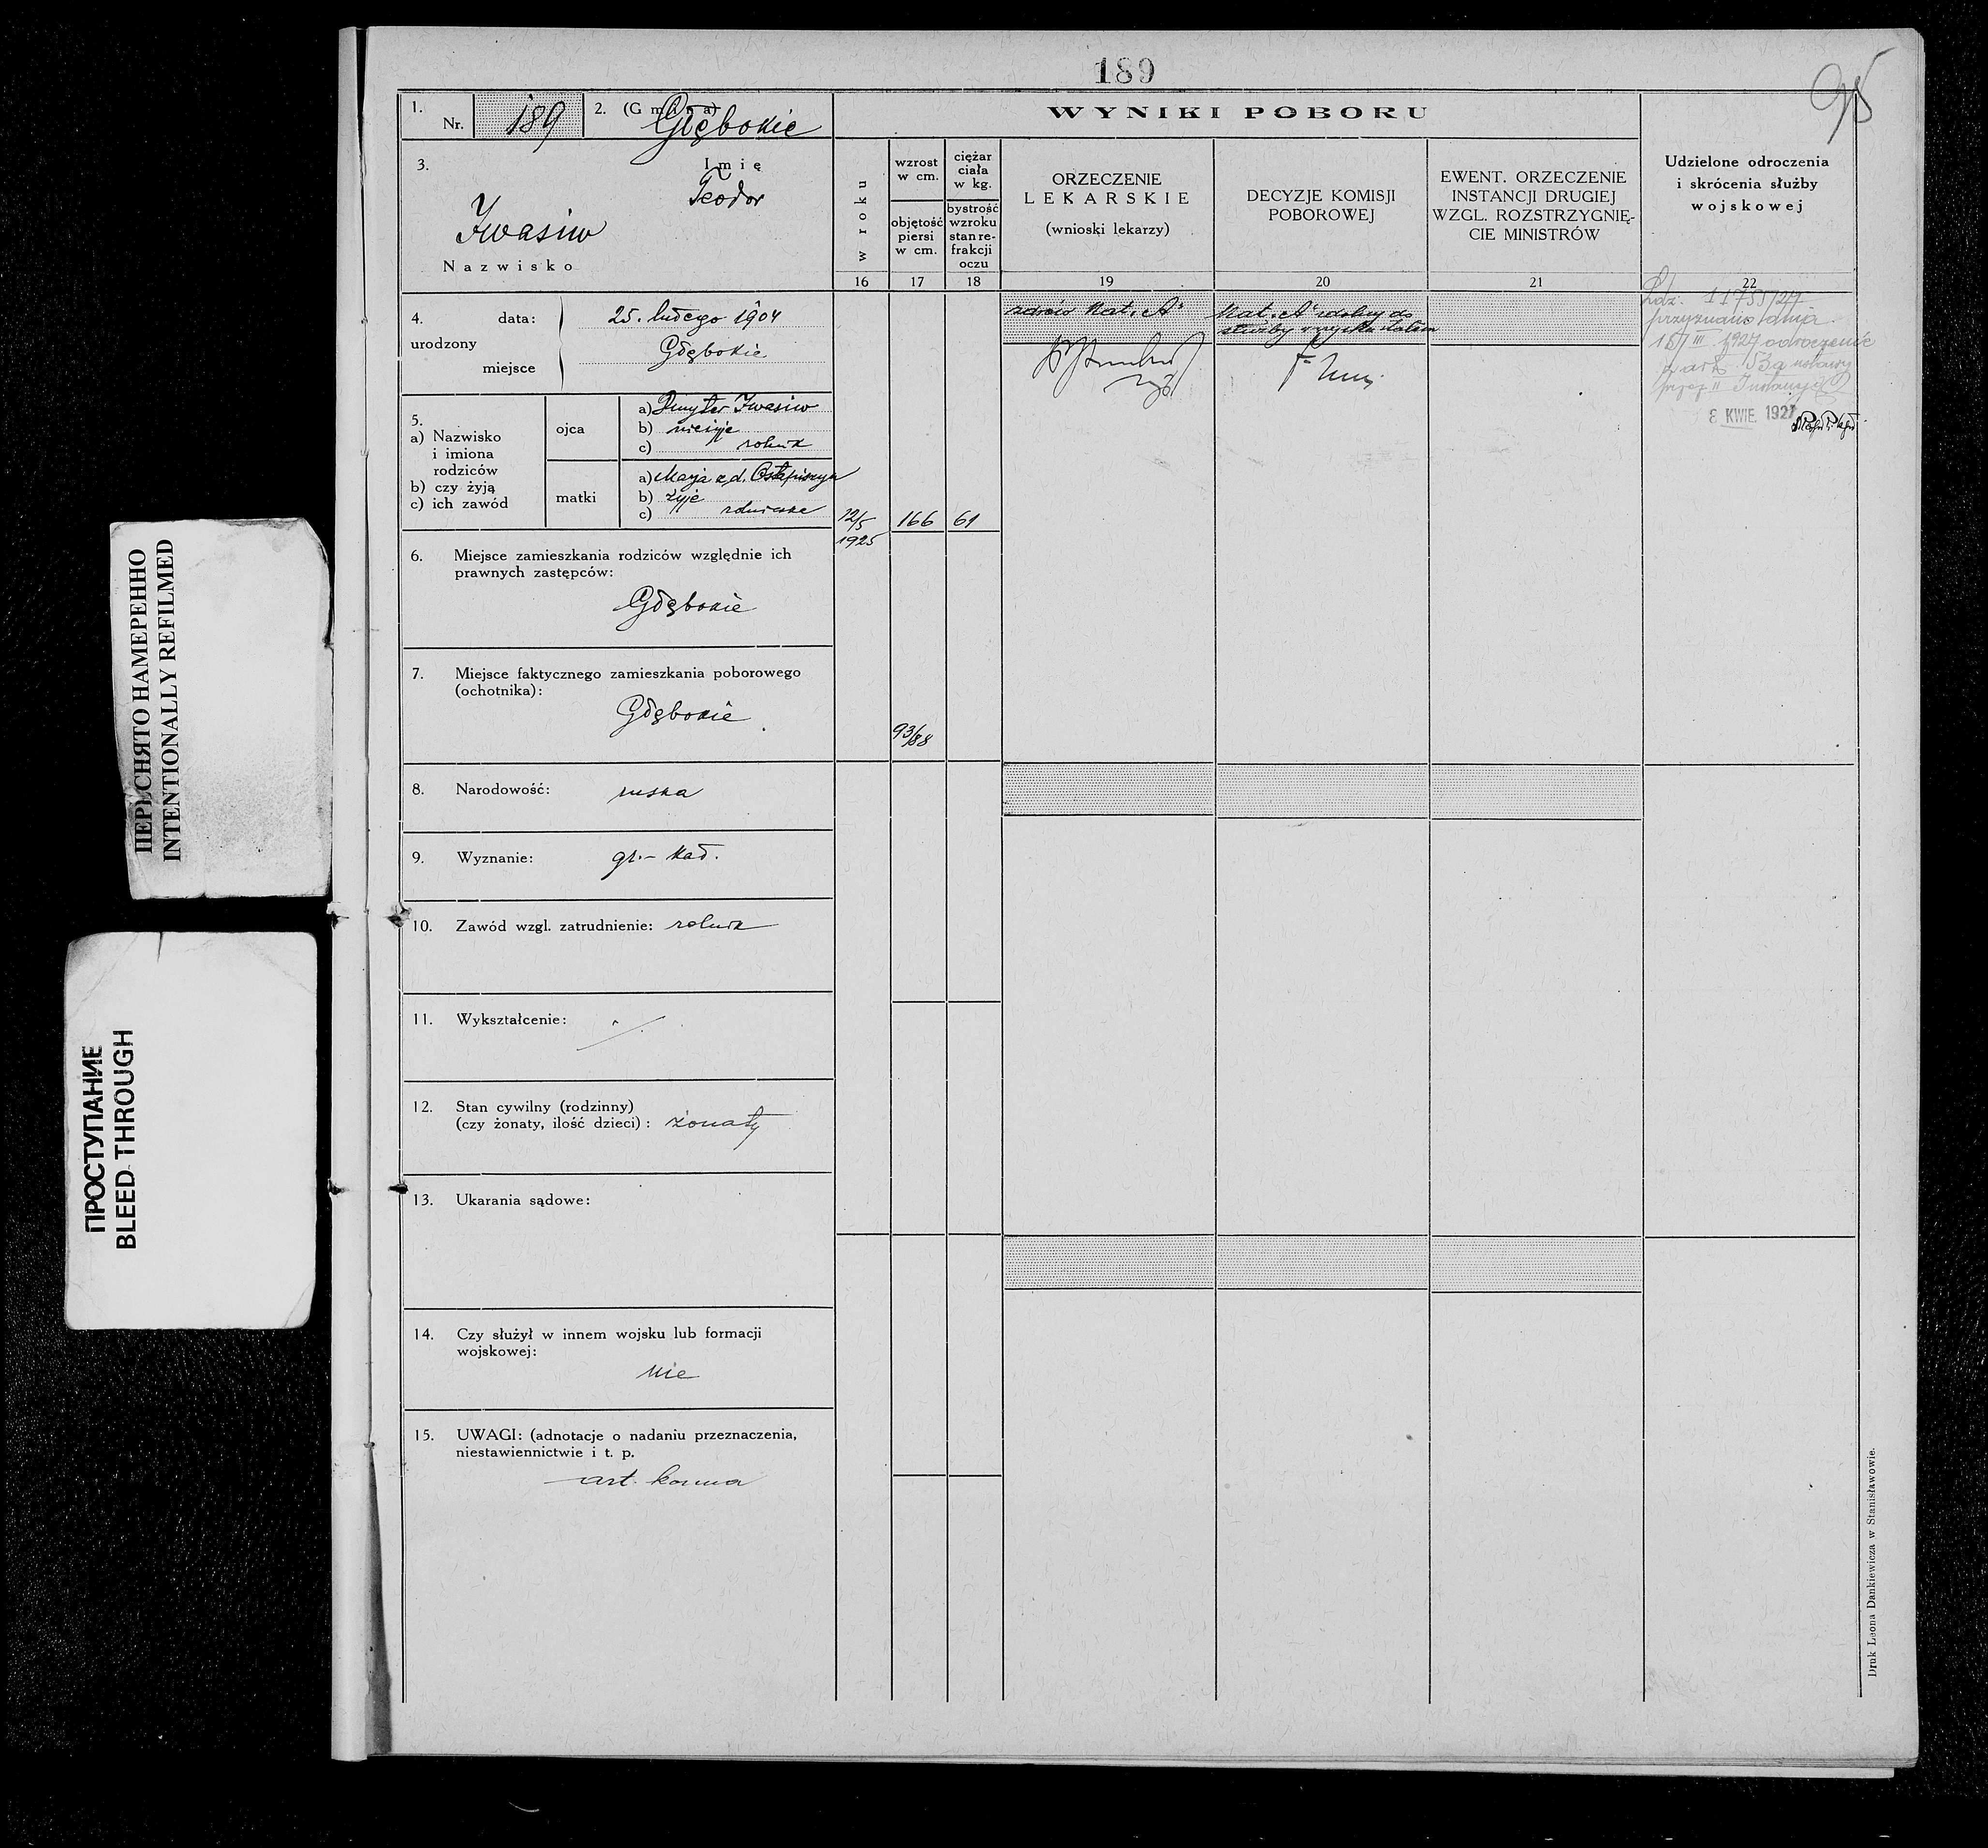 189
95
1.
Nr. 189
2. (Gmina) Głębokie
WYNIKI POBORU
3.
Imię
Teodor
Iwasiw
Nazwisko
w roku
wzrost
w cm.
objętość
piersi
w cm.
ciężar
ciała
w kg.
bystrość
wzroku
stan re-
frakcji
oczu
ORZECZENIE
LEKARSKIE
(wnioski lekarzy)
DECYZJE KOMISJI
POBOROWEJ
EWENT. ORZECZENIE
INSTANCJI DRUGIEJ
WZGL. ROZSTRZYGNIĘ-
CIE MINISTRÓW
Udzielone odroczenia
i skrócenia służby
wojskowej
16 17 18 19 20 21 22
4. data: 25. lutego 1904
urodzony
miejsce Głębokie
5.
a) Nazwisko
i imiona
rodziców
b) czy żyją
c) ich zawód
ojca
a) Dmyter Iwasiw
b) nieżyje
c) rolnik
matki
a) Marja z d.
b) żyje
c) rolniczka
12/5
1925
166
61
93/88
kat. A
Kat. A zdolny do
służby
11755/27
przyznano
1927 odroczenie
z art. 53a ustawy
II Instancja
8 KWIE. 1927
6. Miejsce zamieszkania rodziców względnie ich
prawnych zastępców:
Głębokie
7. Miejsce faktycznego zamieszkania poborowego
(ochotnika):
Głębokie
8. Narodowość: ruska
9. Wyznanie: gr.- kat.
10. Zawód wzgl. zatrudnienie: rolnik
11. Wykształcenie:
12. Stan cywilny (rodzinny)
(czy żonaty, ilość dzieci): żonaty
13. Ukarania sądowe:
14. Czy służył w innem wojsku lub formacji
wojskowej:
nie
15. UWAGI: (adnotacje o nadaniu przeznaczenia,
niestawiennictwie i t. p.
art. konna
Druk Leona Dankiewicza w Stanisławowie.
ПЕРЕСНЯТО НАМЕРЕННО
INTENTIONALLY REFILMED
ПРОСТУПАНИЕ
BLEED-THROUGH